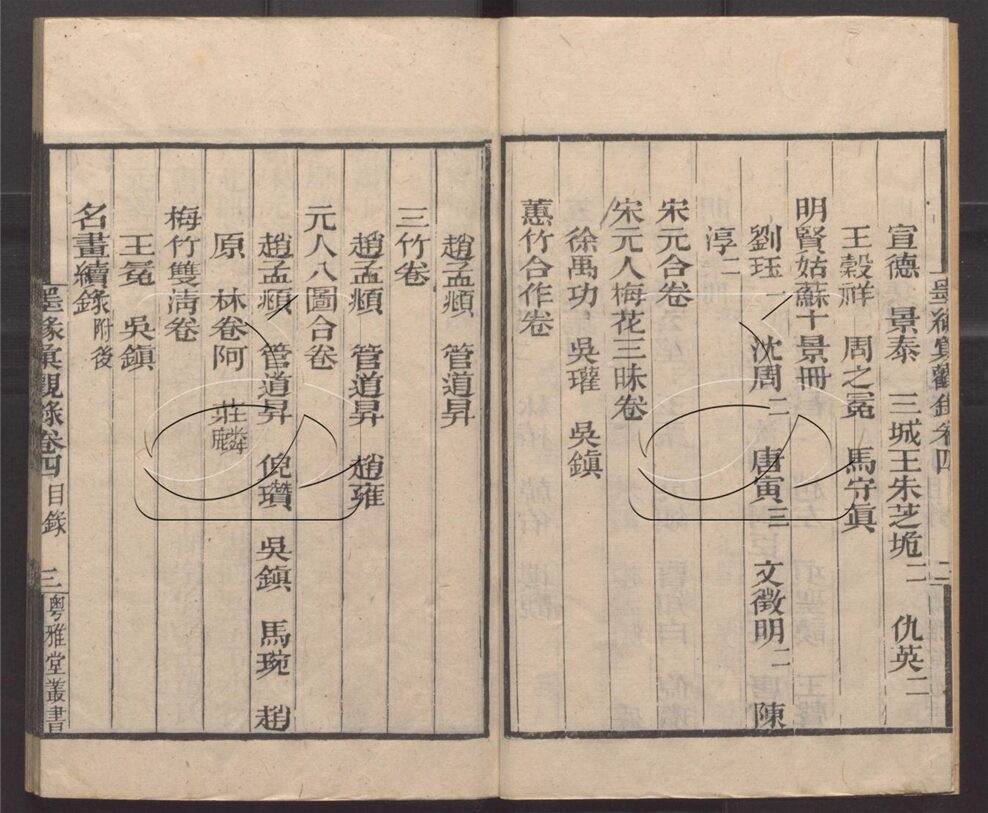 墨緣彙觀錄卷四 二
宣德 景泰 三城王朱芝垝二 仇英二
王穀祥 周之冕 馬守眞
明賢姑蘇十景冊
劉珏一 沈周二 唐寅三 文徵明二 陳
淳二
宋元合卷
宋元人梅花三昧卷
徐禹功 吳瓘 吳鎮
蕙竹合作卷
趙孟頫 管道昇
三竹卷
趙孟頫 管道昇 趙雍
元人八圖合卷
趙孟頫 管道昇 倪瓚 吳鎮 馬琬 趙
原 林卷阿 莊麟
梅竹雙清卷
王冕 吳鎮
名畫續錄附後
墨緣彙觀錄卷四目錄 三 粵雅堂叢書